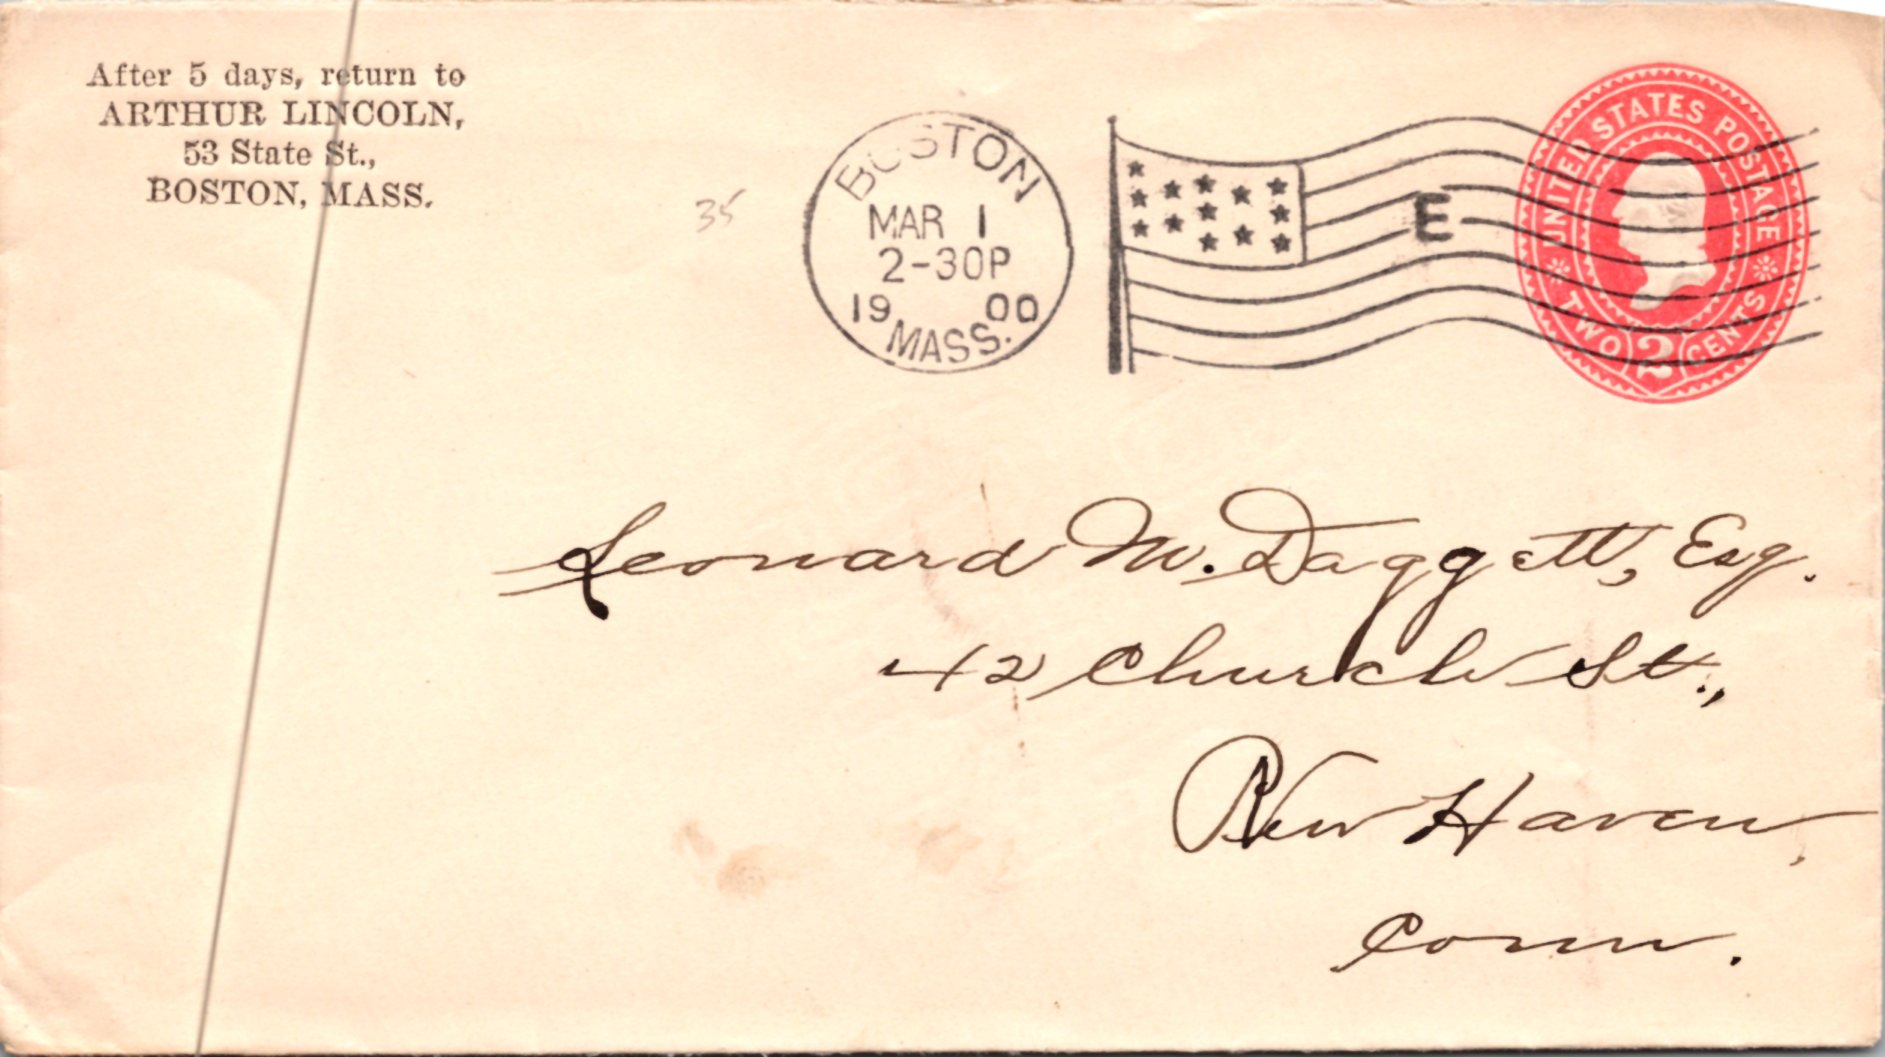 After 5 days, return to
ARTHUR LINCOLN,
53 State St.,
BOSTON, MASS.
35
BOSTON
MAR 1
2-30P
19 00
MASS.
E
UNITED STATES POSTAGE
TWO 2 CENTS
Leonard M. Daggett, Esq.
42 Church St.,
New Haven,
Conn.